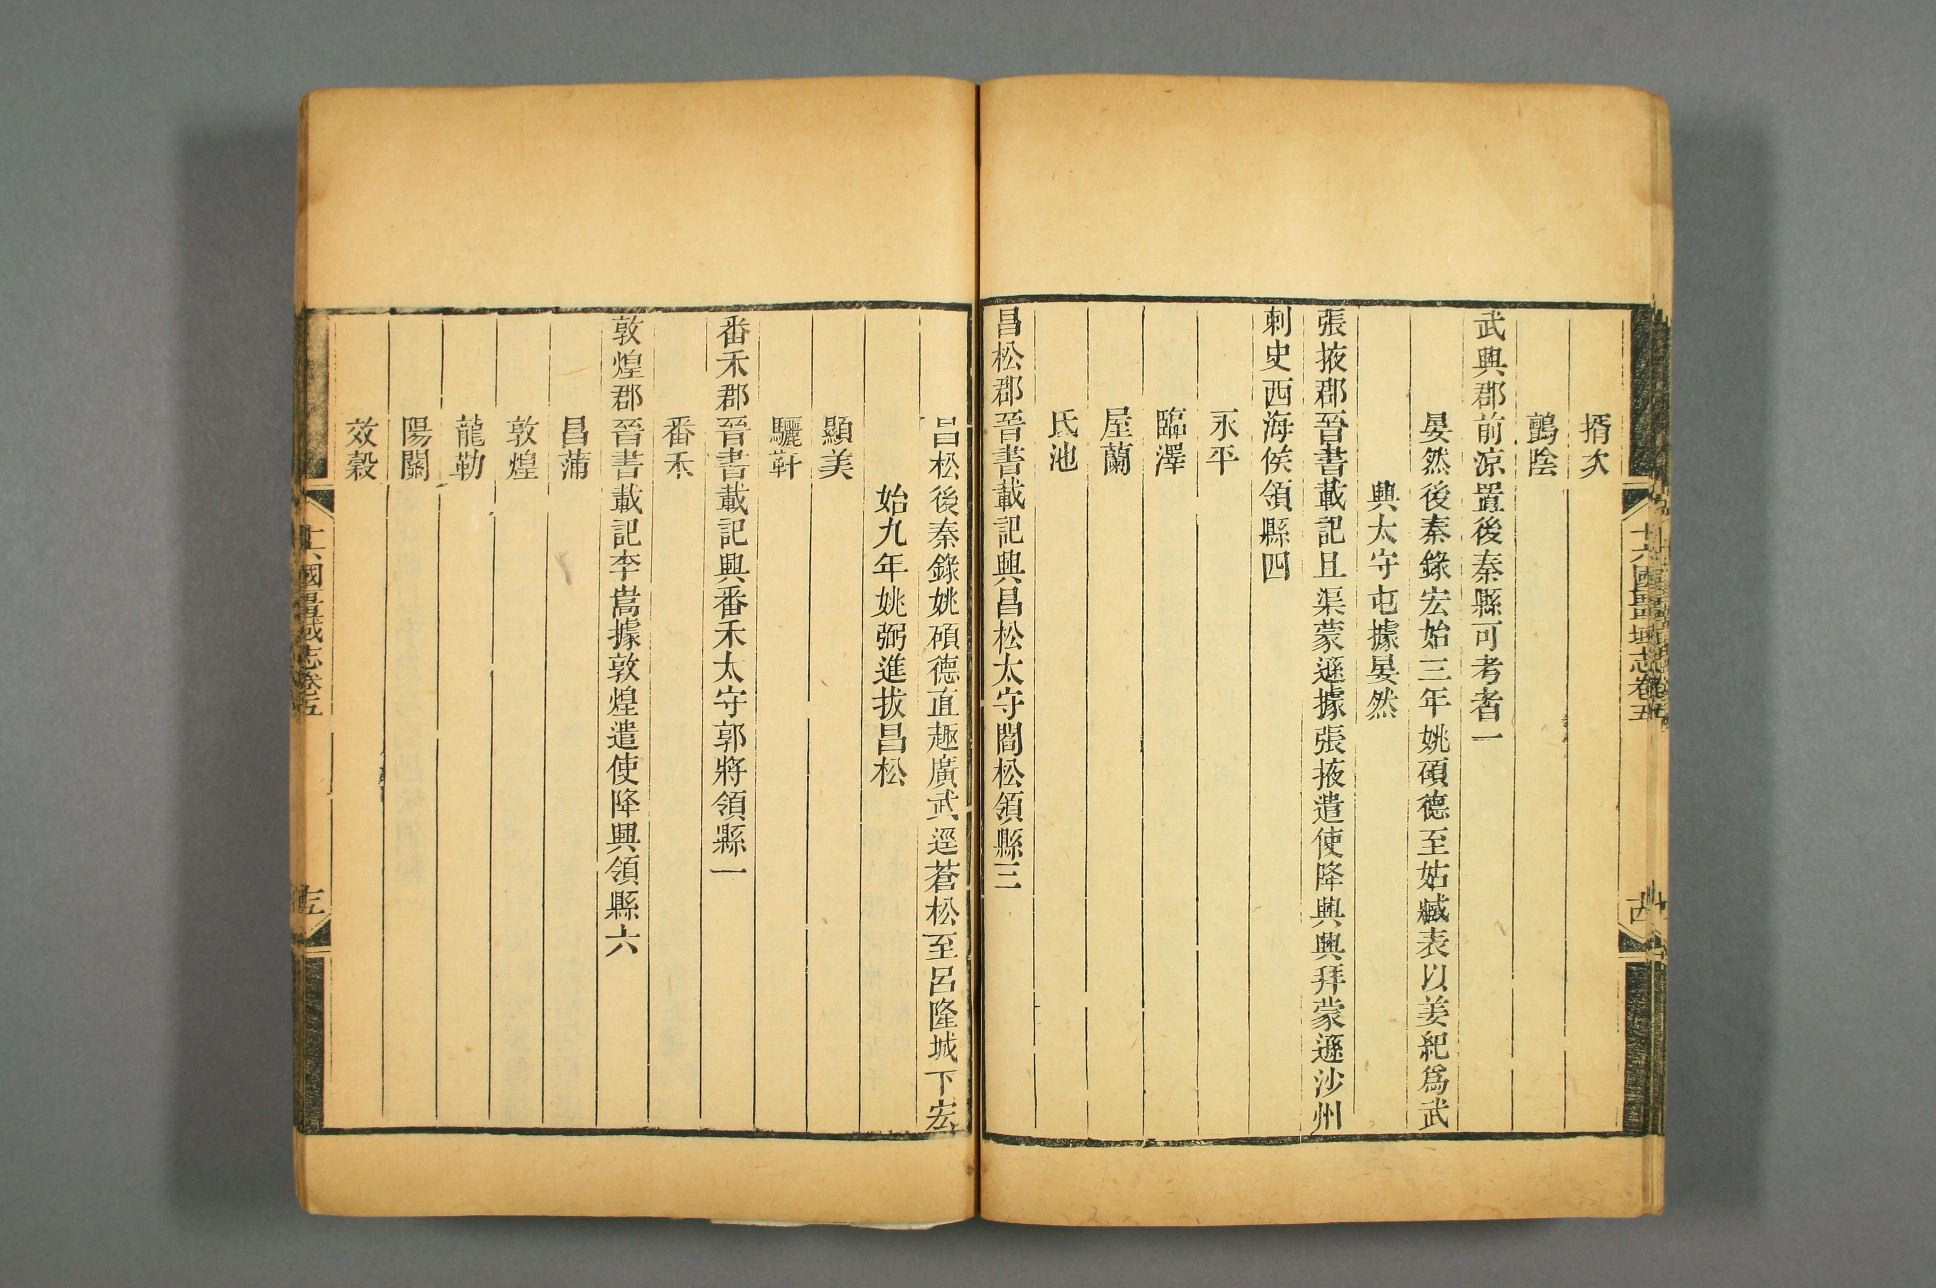 揟次
鸇陰
武興郡前涼置後秦縣可考者一
晏然後秦錄宏始三年姚碩德至姑臧表以姜紀爲武
興太守屯據晏然
張掖郡晉書載記且渠蒙遜據張掖遣使降興興拜蒙遜沙州
刺史西海侯領縣四
永平
臨澤
屋蘭
氐池
昌松郡晉書載記興昌松太守閻松領縣三
昌松後秦錄姚碩德直趨廣武逕蒼松至呂隆城下宏
始九年姚弼進拔昌松
顯美
驪靬
番禾郡晉書載記興番禾太守郭將領縣一
番禾
敦煌郡晉書載記李暠據敦煌遣使降興領縣六
昌蒲
敦煌
龍勒
陽關
效穀
十六國疆域志卷五
十六國疆域志卷五